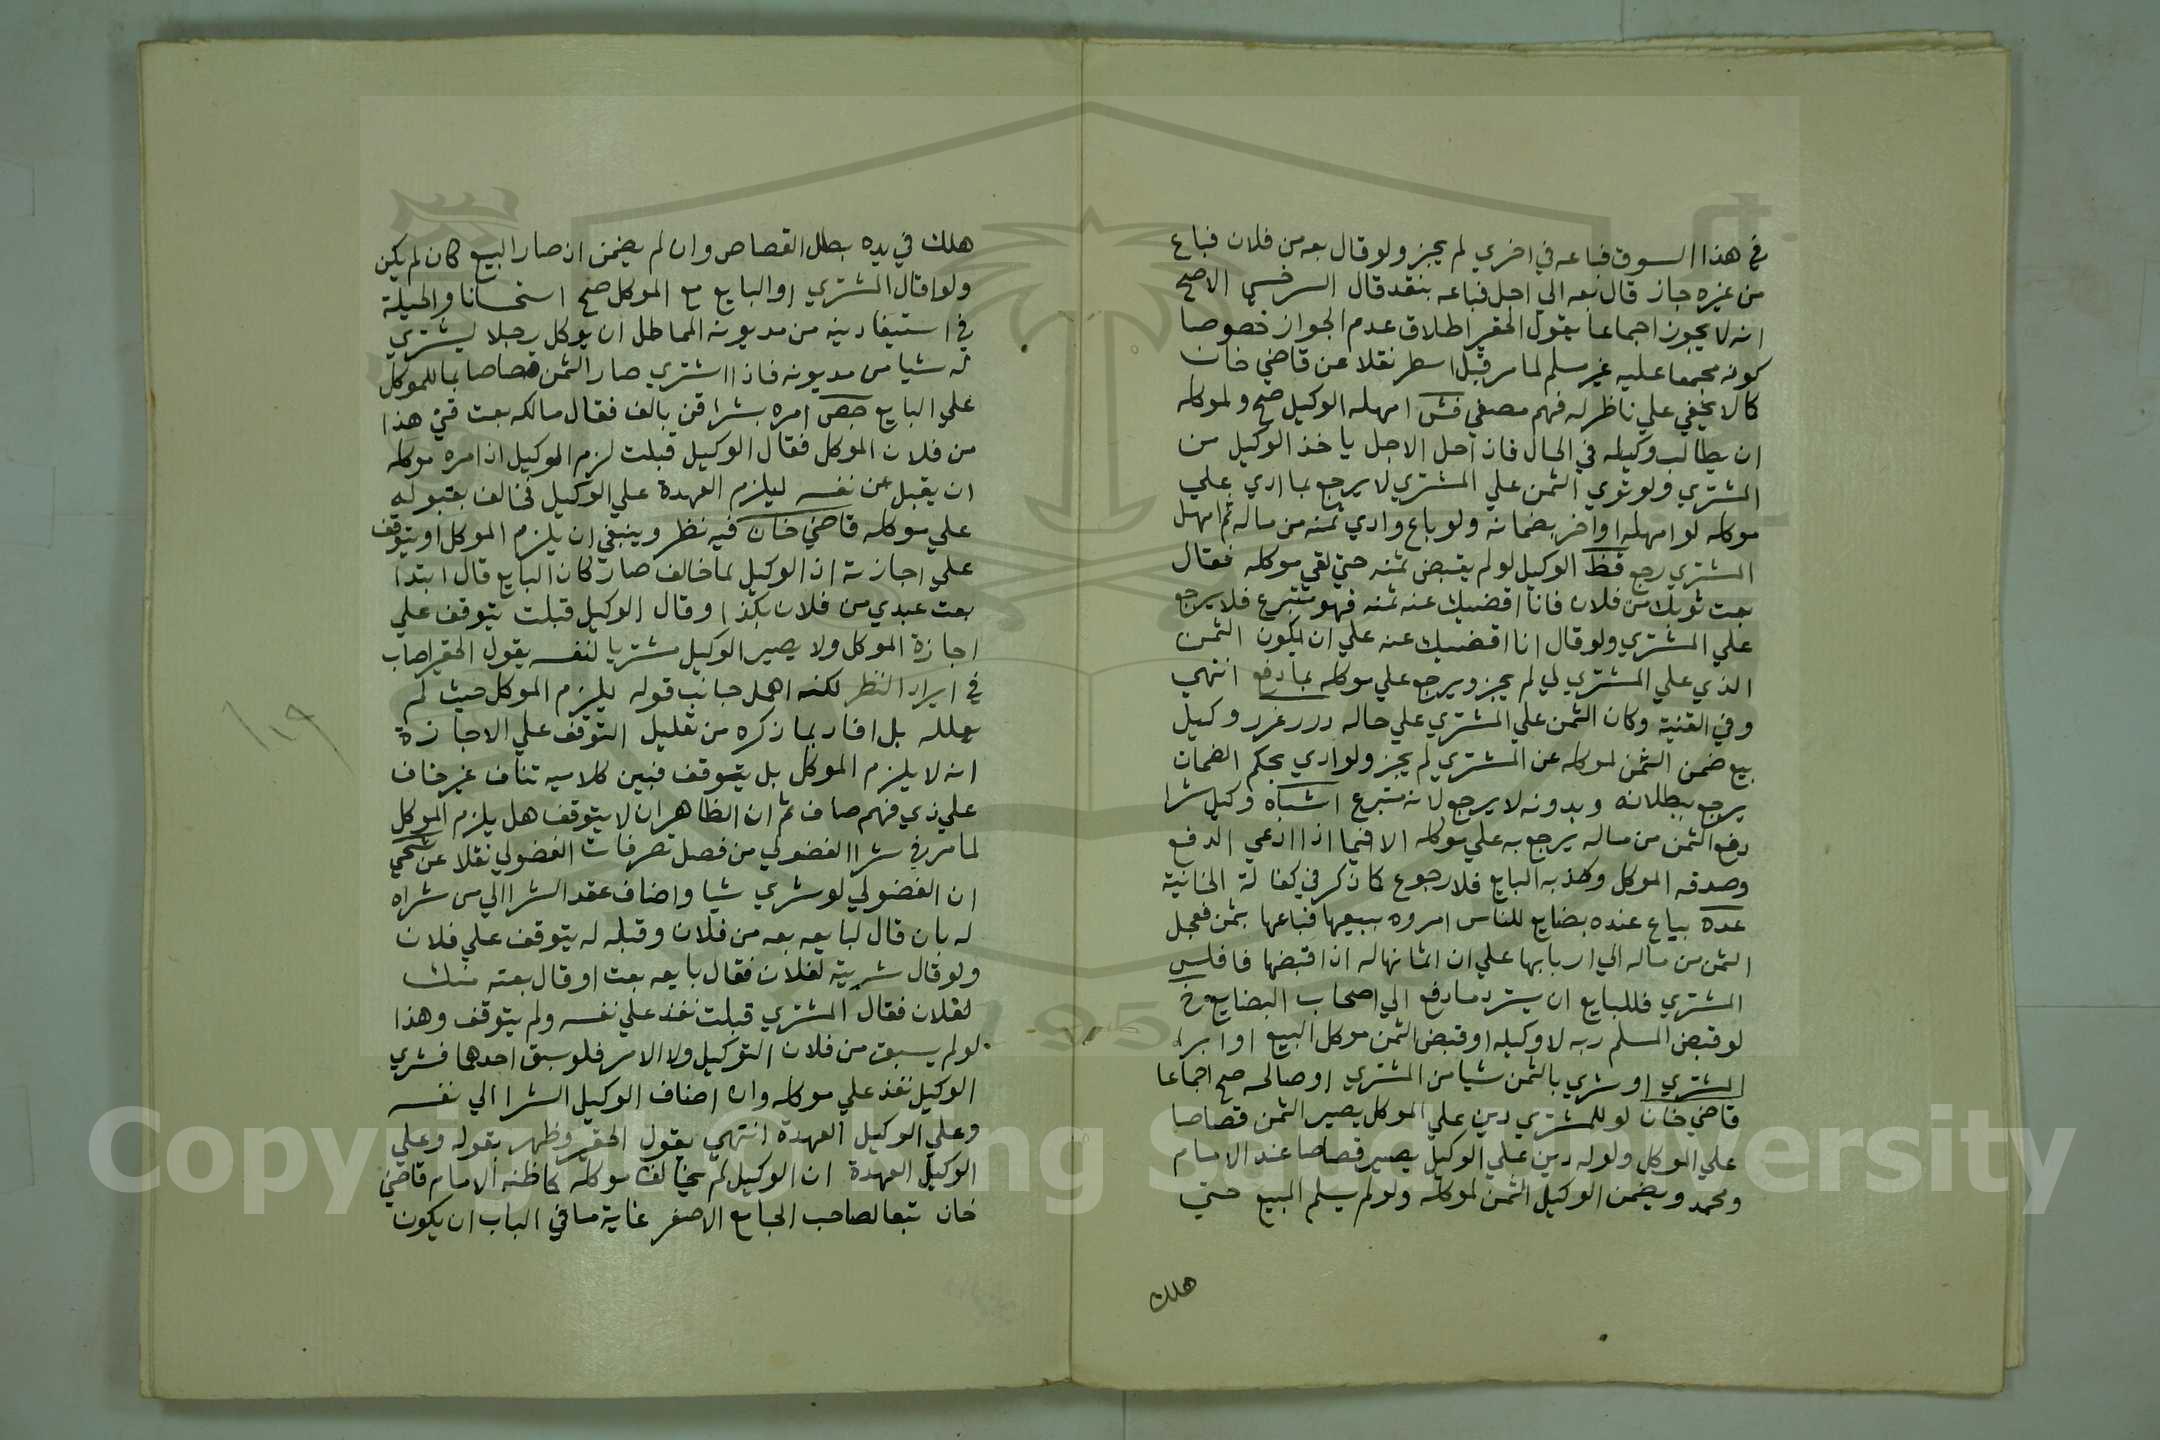 في هذا السوق فباعه في اخري لم يجز ولو قال بعه من فلان فباع
من غيره جاز قال بعه الي اجل فباعه بنقد قال السرخسي الاصح
انه لا يجوز اجماعا يقول الحقير اطلاق عدم الجواز خصوصا
كونه مجمعا عليه غير سلم لما مر قبل اسطر نقلا عن قاضي خان
كما لا يخفي علي ناظر له فهم مصغي فش امهله الوكيل صح ولموكله
ان يطالب وكيله في الحال فاذ احل الاجل ياخذ الوكيل من
المشتري ولو توي الثمن علي المشتري لا يرجع بما ادي علي
موكله لو امهله او اخر بضمانه ولو باع وادي ثمنه من ماله ثم امهل
المشتري رجع قظ الوكيل لو لم يقبض ثمنه حتي لقي موكله فقال
بعت ثوبك من فلان فانا اقضيك عنه ثمنه فهو متبرع فلا يرجع
علي المشتري ولو قال انا اقضيك عنه علي ان يكون الثمن
الذي علي المشتري لي لم يجز ويرجع علي موكله بما دفع انتهي
وفي القنية وكان الثمن علي المشتري علي حاله درر غرر وكيل
بيع ضمن الثمن لموكله عن المشتري لم يجز ولو ادي بحكم الضمان
يرجع ببطلانه وبدونه لا يرجع لانه متبرع اشباه وكيل شرا
دفع الثمن من ماله يرجع به علي موكله الا فيما اذا ادعي الدفع
وصدقه الموكل وكذبه البايع فلا رجوع كما ذكر في كفالة الخانية
عده بياع عنده بضايع للناس امروه ببيعها فباعها بثمن فعجل
الثمن من ماله الي اربابها علي ان اثمانها له اذا قبضها فافلس
المشتري فللبايع ان يسترد ما دفع الي اصحاب البضايع خ
لو قبض المسلم ربه لا وكيله او قبض الثمن موكل البيع او ابرا
المشتري او شري بالثمن شيا من المشتري او صالحه صح اجماعا
قاضي خان لو للمشتري دين علي الموكل يصير الثمن قصاصا
علي الموكل ولو له دين علي الوكيل يصير قصاصا عند الامام
ومحمد ويضمن الوكيل الثمن لموكله ولو لم يسلم المبيع حتي
هلك
هلك في يده بطل القصاص وان لم يضمن اذ صار البيع كان لم يكن
ولو اقال المشتري او البايع مع الموكل صح استحسانا والحيلة
في استيفا دينه من مديونه المماطل ان يوكل رجلا ليشتري
له شيا من مديونه فاذا اشتري صار الثمن قصاصا بما للموكل
علي البايع جص امره بشرا قن بالف فقال مالكه بعت قني هذا
من فلان الموكل فقال الوكيل قبلت لزم الوكيل اذ امره موكله
ان يقبل عن نفسه ليلزم العهدة علي الوكيل فخالف بقبوله
علي موكله قاضي خان فيه نظر وينبغي ان يلزم الموكل او يتوقف
علي اجازته اذ الوكيل لما خالف صار كان البايع قال ابتدا
بعت عبدي من فلان بكذا وقال الوكيل قبلت يتوقف علي
اجازة الموكل ولا يصير الوكيل مشتريا لنفسه يقول الحقير اصاب
في ايراد النظر لكنه اهمل جانب قوله يلزم الموكل حيث لم
يعلله بل افاد بما ذكره من تعليل التوقف علي الاجازة
انه لا يلزم الموكل بل يتوقف فبين كلاميه تناف غير خاف
علي ذي فهم صاف ثم ان الظاهر ان لا يتوقف هل يلزم الموكل
لما مر في شرا الفضولي من فصل تصرفات الفضولي نقلا عن شحي
ان الفضولي لو شري شيا واضاف عقد الشرا الي من شراه
له بان قال لبايعه بعه من فلان وقبله له يتوقف علي فلان
ولو قال شريته لفلان فقال بايعه بعت او قال بعته منك
لفلان فقال المشتري قبلت نفذ علي نفسه ولم يتوقف وهذا
لو لم يسبق من فلان التوكيل ولا الامر فلو سبق احدهما فشري
الوكيل نفذ علي موكله وان اضاف الوكيل الشرا الي نفسه
وعلي الوكيل العهدة انتهي يقول الحقير وظهر بقوله وعلي
الوكيل العهدة ان الوكيل لم يخالف موكله كما ظنه الامام قاضي
خان تبعا لصاحب الجامع الاصغر غاية ما في الباب ان يكون
١١٩
1957
Copyright © King Saud University